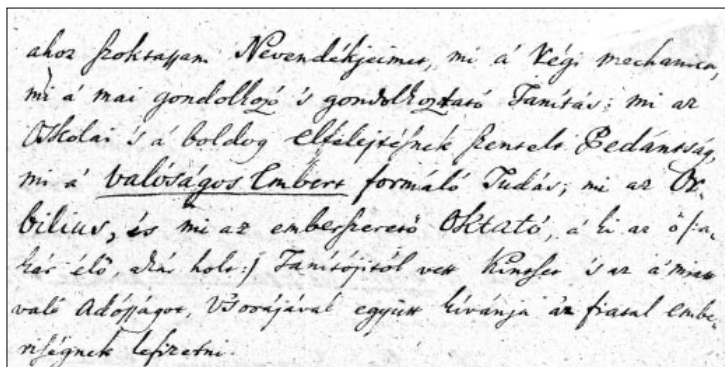 ahoz szoktassam Nevendékjeimet, mi á Régi mechanica,
mi á mai gondolkozó 's gondolkoztató Tanítás; mi az
Oskolai 's á boldog elfelejtésnek szentelt Pedántság,
mi á valóságos Embert formáló Tudás; mi az Or-
bilius, és mi az emberszerető Oktató, á ki az ő /:a-
kár élő, akár holt:/ Tanítójitól vett Kintset 's az á miatt
való Adósságot, Usorájával együtt kívánja az fiatal embe-
riségnek lefizetni.